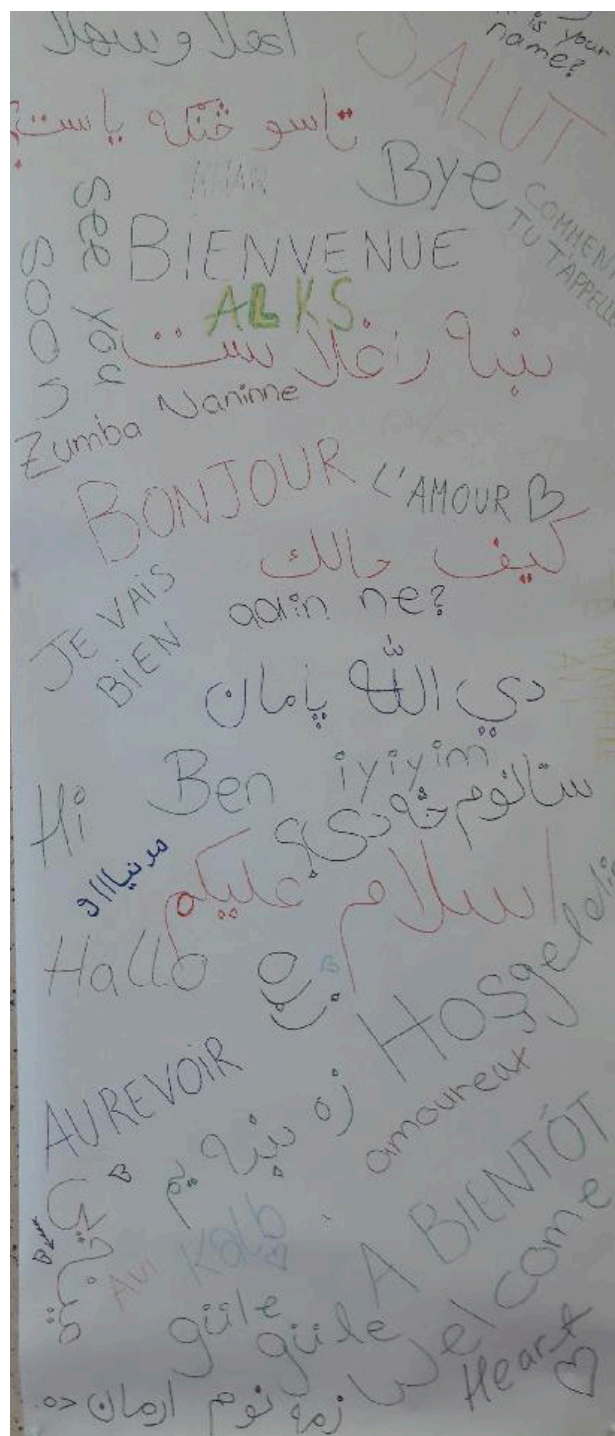 اهلا و سهلا
is your
name?
SALUT
تاسو څنګه یاست؟
KHAN
Bye
COMMENT
TU T'APPELLE
See you
soon
BIENVENUE
ALKS
ښه راغلاست
Zumba Naninne
BONJOUR
L'AMOUR
كيف حالك
JE VAIS
BIEN
adin ne?
دي الله پامان
Hi
Ben iyiyim
ستا نوم څه دی؟
اسلام عليكم
Hallo
Hoşgeldin
AUREVOIR
زه ښه یم
amoureux
A BIENTÔT
Kalb
güle
güle
Welcome
Heart
زمه نوم ارمان ده.